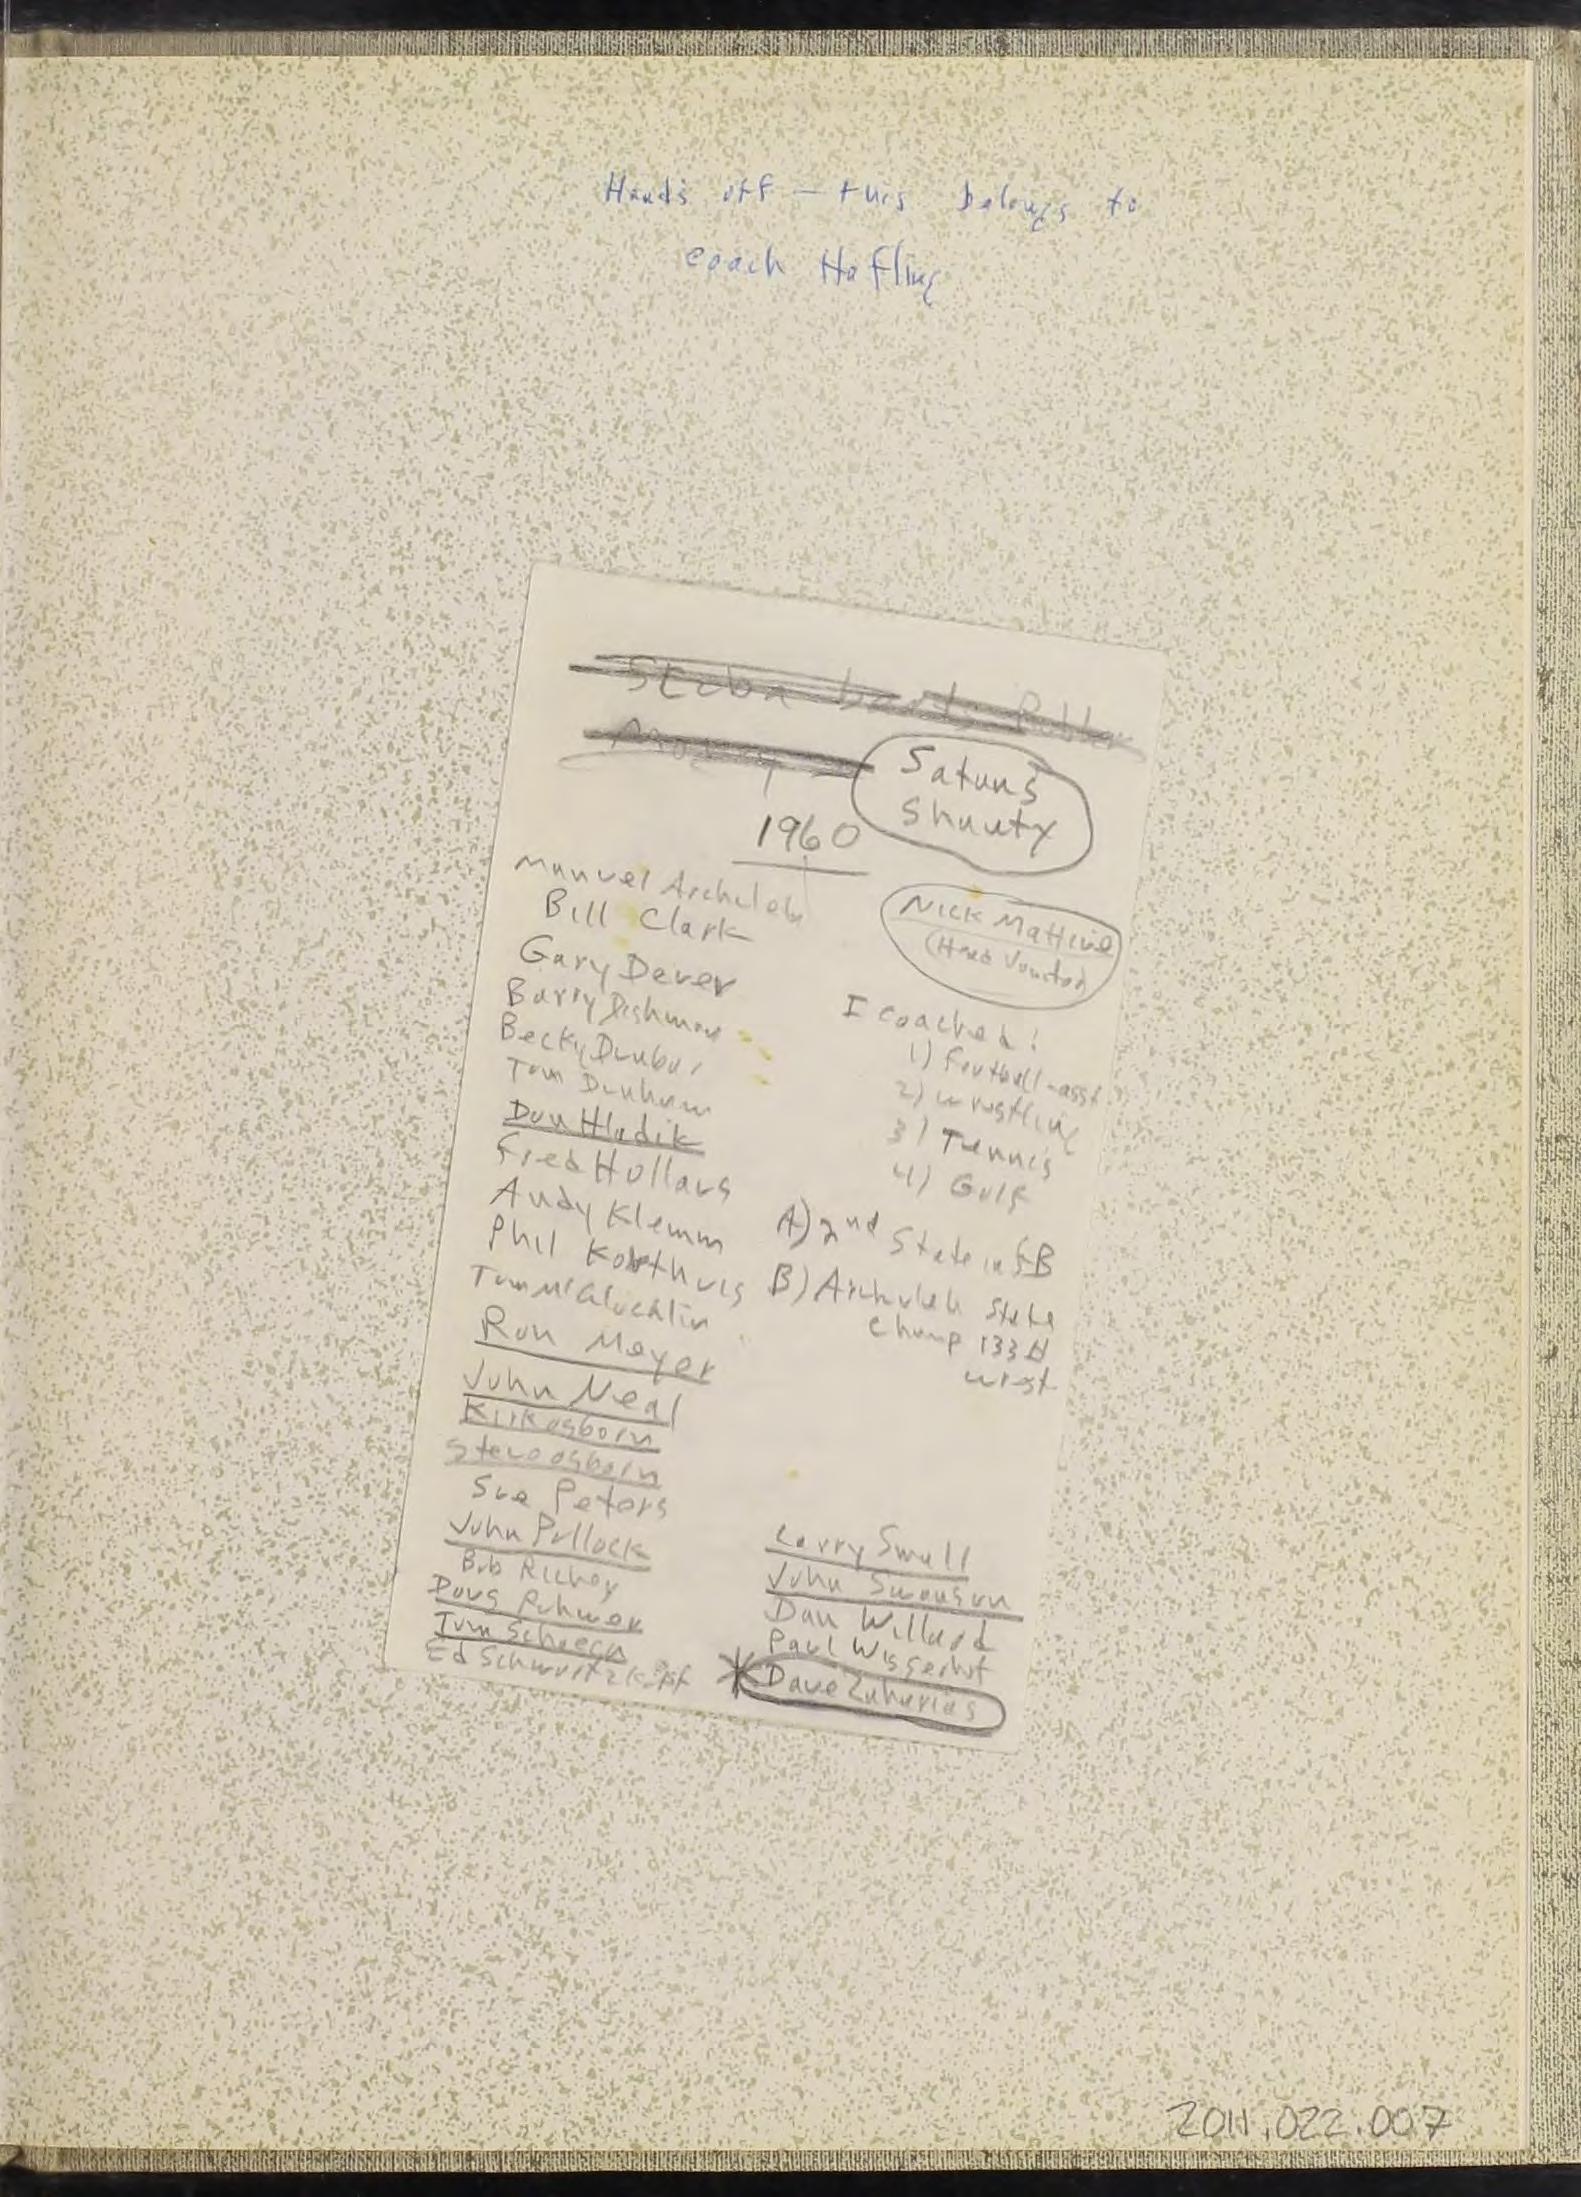 Hands off — this belongs to
coach Hofling
Satans
Shanty
1960
Manuel Archuleta
Bill Clark
Gary Dever
Barry Dishman
Becky Dunbar
Tom Dunham
Don Hladik
Fred Hollars
Andy Klemm
Phil Korthuis
Tom McGlochlin
Ron Meyer
John Neal
Kirk Osborn
Steve Osborn
Sue Peters
John Pollock
Bob Richey
Doug
Tom
Ed
Nick
I coached:
1) Football-asst
2) wrestling
3) Tennis
4) Golf
A) 2nd State in FB
B) Archuleta State
Champ 133#
wrest
Larry Small
John Swanson
Dan Willard
Paul
* Dave Zaharias
2011.022.007